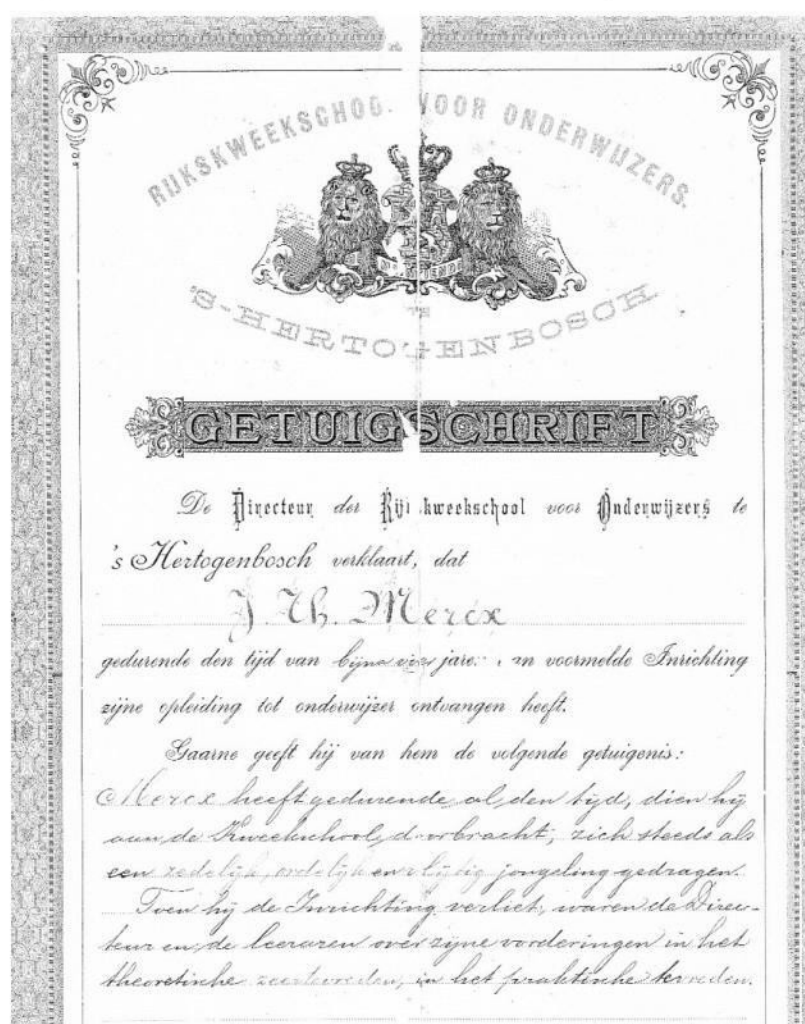 RIJKSKWEEKSCHOOL VOOR ONDERWIJZERS.
TE
'S-HERTOGENBOSCH
GETUIGSCHRIFT
De Directeur der Rijkskweekschool voor Onderwijzers te
's Hertogenbosch verklaart, dat
J. Th. Mercx
gedurende den tijd van bijna vier jaren aan voormelde Inrichting
zijne opleiding tot onderwijzer ontvangen heeft.
Gaarne geeft hij van hem de volgende getuigenis:
Mercx heeft gedurende al den tijd, dien hij
aan de Kweekschool doorbracht, zich steeds als
een zedelijk, ordelijk en vlijtig jongeling gedragen.
Toen hij de Inrichting verliet, waren de Direc-
teur en de leeraren over zijne vorderingen in het
theoretische zeer tevreden, in het praktische tevreden.